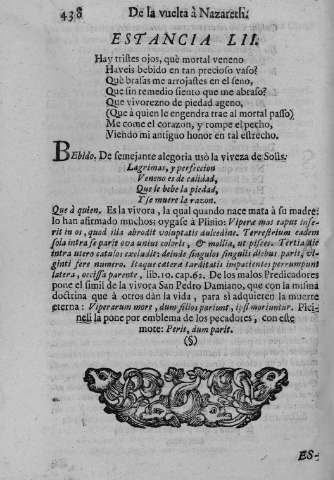 438 De la vuelta à Nazareth.
ESTANCIA LII.
Hay tristes ojos, què mortal veneno
Haveis bebido en tan precioso vaso?
Què brasas me arrojastes en el seno,
Que sin remedio siento que me abraso?
Què vivorezno de piedad ageno,
(Que à quien le engendra trae al mortal passo)
Me come el corazon, y rompe el pecho,
Viendo mi antiguo honor en tal estrecho.
BEbido. De semejante alegoria usò la viveza de Solis:
Lagrimas, y perfeccion
Veneno es de calidad,
Que le bebe la piedad,
Y se muere la razon.
Que à quien. Es la vivora, la qual quando nace mata à su madre:
lo han afirmado muchos: oygase à Plinio: Viperæ mas caput inse-
rit in os, quod illa abrodit voluptatis dulcedine. Terrestrium eadem
sola intra se parit ova unius coloris, & mollia, ut pisces. Tertia die
intra utero catulos excludit: deinde singulos singulis diebus parit, vi-
ginti fere numero. Itaque cæteræ tarditatis impatientes perrumpunt
latera, occissa parente, lib. 10. cap. 62. De los malos Predicadores
pone el simil de la vivora San Pedro Damiano, que con la misma
doctrina que à otros dàn la vida, para si adquieren la muerte
eterna: Viperarum more, dum filios pariunt, ipsi moriuntur. Pici-
neli la pone por emblema de los pecadores, con este
mote: Perit, dum parit.
(§)
ES-